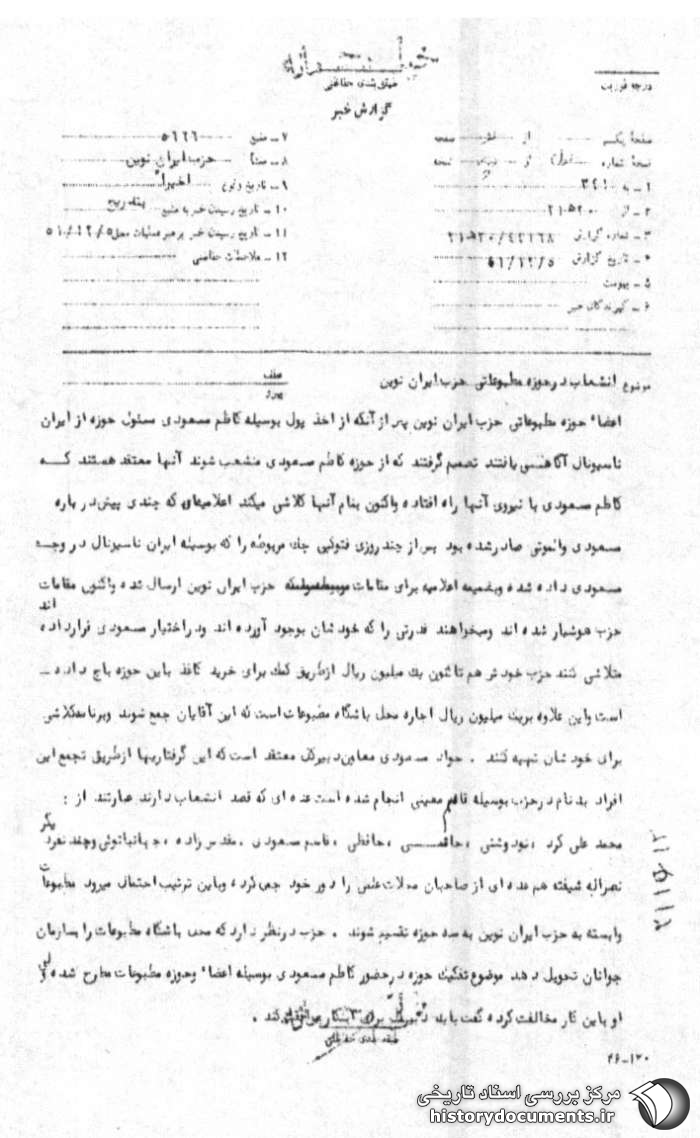 طبقه‌بندی حفاظتی
گزارش خبر
درجه فوریت
صفحه یکم از صفحه
نسخه شماره از نسخه
۱ ـ به ۳٤۱۰
۲ ـ از ۲۱۰۵۲۰
۳ ـ شماره گزارش ۲۱۰۵۲۰/٤۲۱٦۸
٤ ـ تاریخ گزارش ۵۱/۱۲/۵
۵ ـ پیوست
٦ ـ گیرندگان خبر
۷ ـ منبع ۵٦٦٦
۸ ـ منشأ حزب ایران نوین
۹ ـ تاریخ وقوع اخیراً
۱۰ ـ تاریخ رسیدن خبر به منبع بتدریج
۱۱ ـ تاریخ رسیدن خبر برهبر عملیات محل ۵۱/۱۲/۵
۱۲ ـ ملاحظات حفاظتی
موضوع انشعاب در حوزه مطبوعاتی حزب ایران نوین
عطف
پیرو
اعضاء حوزه مطبوعاتی حزب ایران نوین پس از آنکه از اخذ پول بوسیله کاظم مسعودی مسئول حوزه از ایران
ناسیونال آگاهی یافتند تصمیم گرفتند که از حوزه کاظم مسعودی منشعب شوند آنها معتقد هستند کـه
کاظم مسعودی با نیروی آنها راه افتاده واکنون بنام آنها کلاشی میکند اعلامیه‌ای که چندی پیش در باره
مسعودی وانموتی صادر شده بود پس از چند روزی فتوکپی چک مربوطه را که بوسیله ایران ناسیونال در وجه
مسعودی داده شده وبضمیمه اعلامیه برای مقامات حزب ایران نوین ارسال شده واکنون مقامات
حزب هوشیار شده اند ومیخواهند قدرتی را که خودشان بوجود آورده اند ودراختیار مسعودی قرارداده اند
متلاشی کنند حزب خودش هم تا کنون یک میلیون ریال ازطریق کمک برای خرید کاغذ باین حوزه باج داده ـ
است واین علاوه بریک میلیون ریال اجاره محل باشگاه مطبوعات است که این آقایان جمع شوند وبرنامه کلاشی
برای خودشان تهیه کنند . جواد مسعودی معاون دبیرکل معتقد است که این گرفتاریها ازطریق تجمع این
افراد بدنام درحزب بوسیله قاسم معینی انجام شده است عده ای که قصد انشعاب دارند عبارتند از :
محمد علی کرد ، نودوشنی ، ، حافظی ، قاسم مسعودی ، مقدس زاده ، جهانبانوئی وچند نفر دیگر
نصراله شیفته هم عده ای از صاحبان مجلات علمی را دور خود جمع کرده وباین ترتیب احتمال میرود مطبوعات
وابسته به حزب ایران نوین به سه حوزه تقسیم شوند . حزب درنظر دارد که محل باشگاه مطبوعات را بسازمان
جوانان تحویل دهد موضوع تفکیک حوزه درحضور کاظم مسعودی بوسیله اعضاء وحوزه مطبوعات مطرح شده ولی
او باین کار مخالفت کرده گفت باید دبیرکل برای اینکار موافقت کند .
طبقه بندی حفاظتی
۲٦-۱۲۰
مرکز بررسی اسناد تاریخی
historydocuments.ir